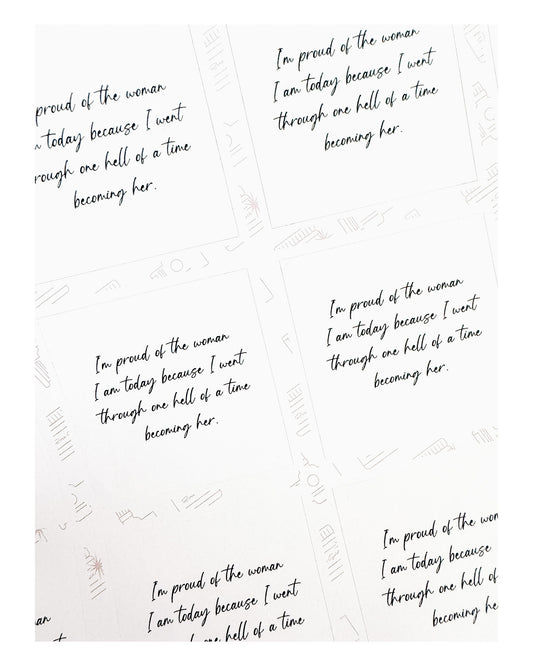 proud of the woman
today because I went
rough one hell of a time
becoming her.
I'm proud of the woman
I am today because I went
through one hell of a time
becoming her.
I'm proud of the woman
I am today because I went
through one hell of a time
becoming her.
I'm proud of the woman
I am today because I went
through one hell of a time
becoming her.
I'm proud of the woman
I am today because I went
one hell of a time
I'm proud of the wom
I am today because
through one hell of
becoming he